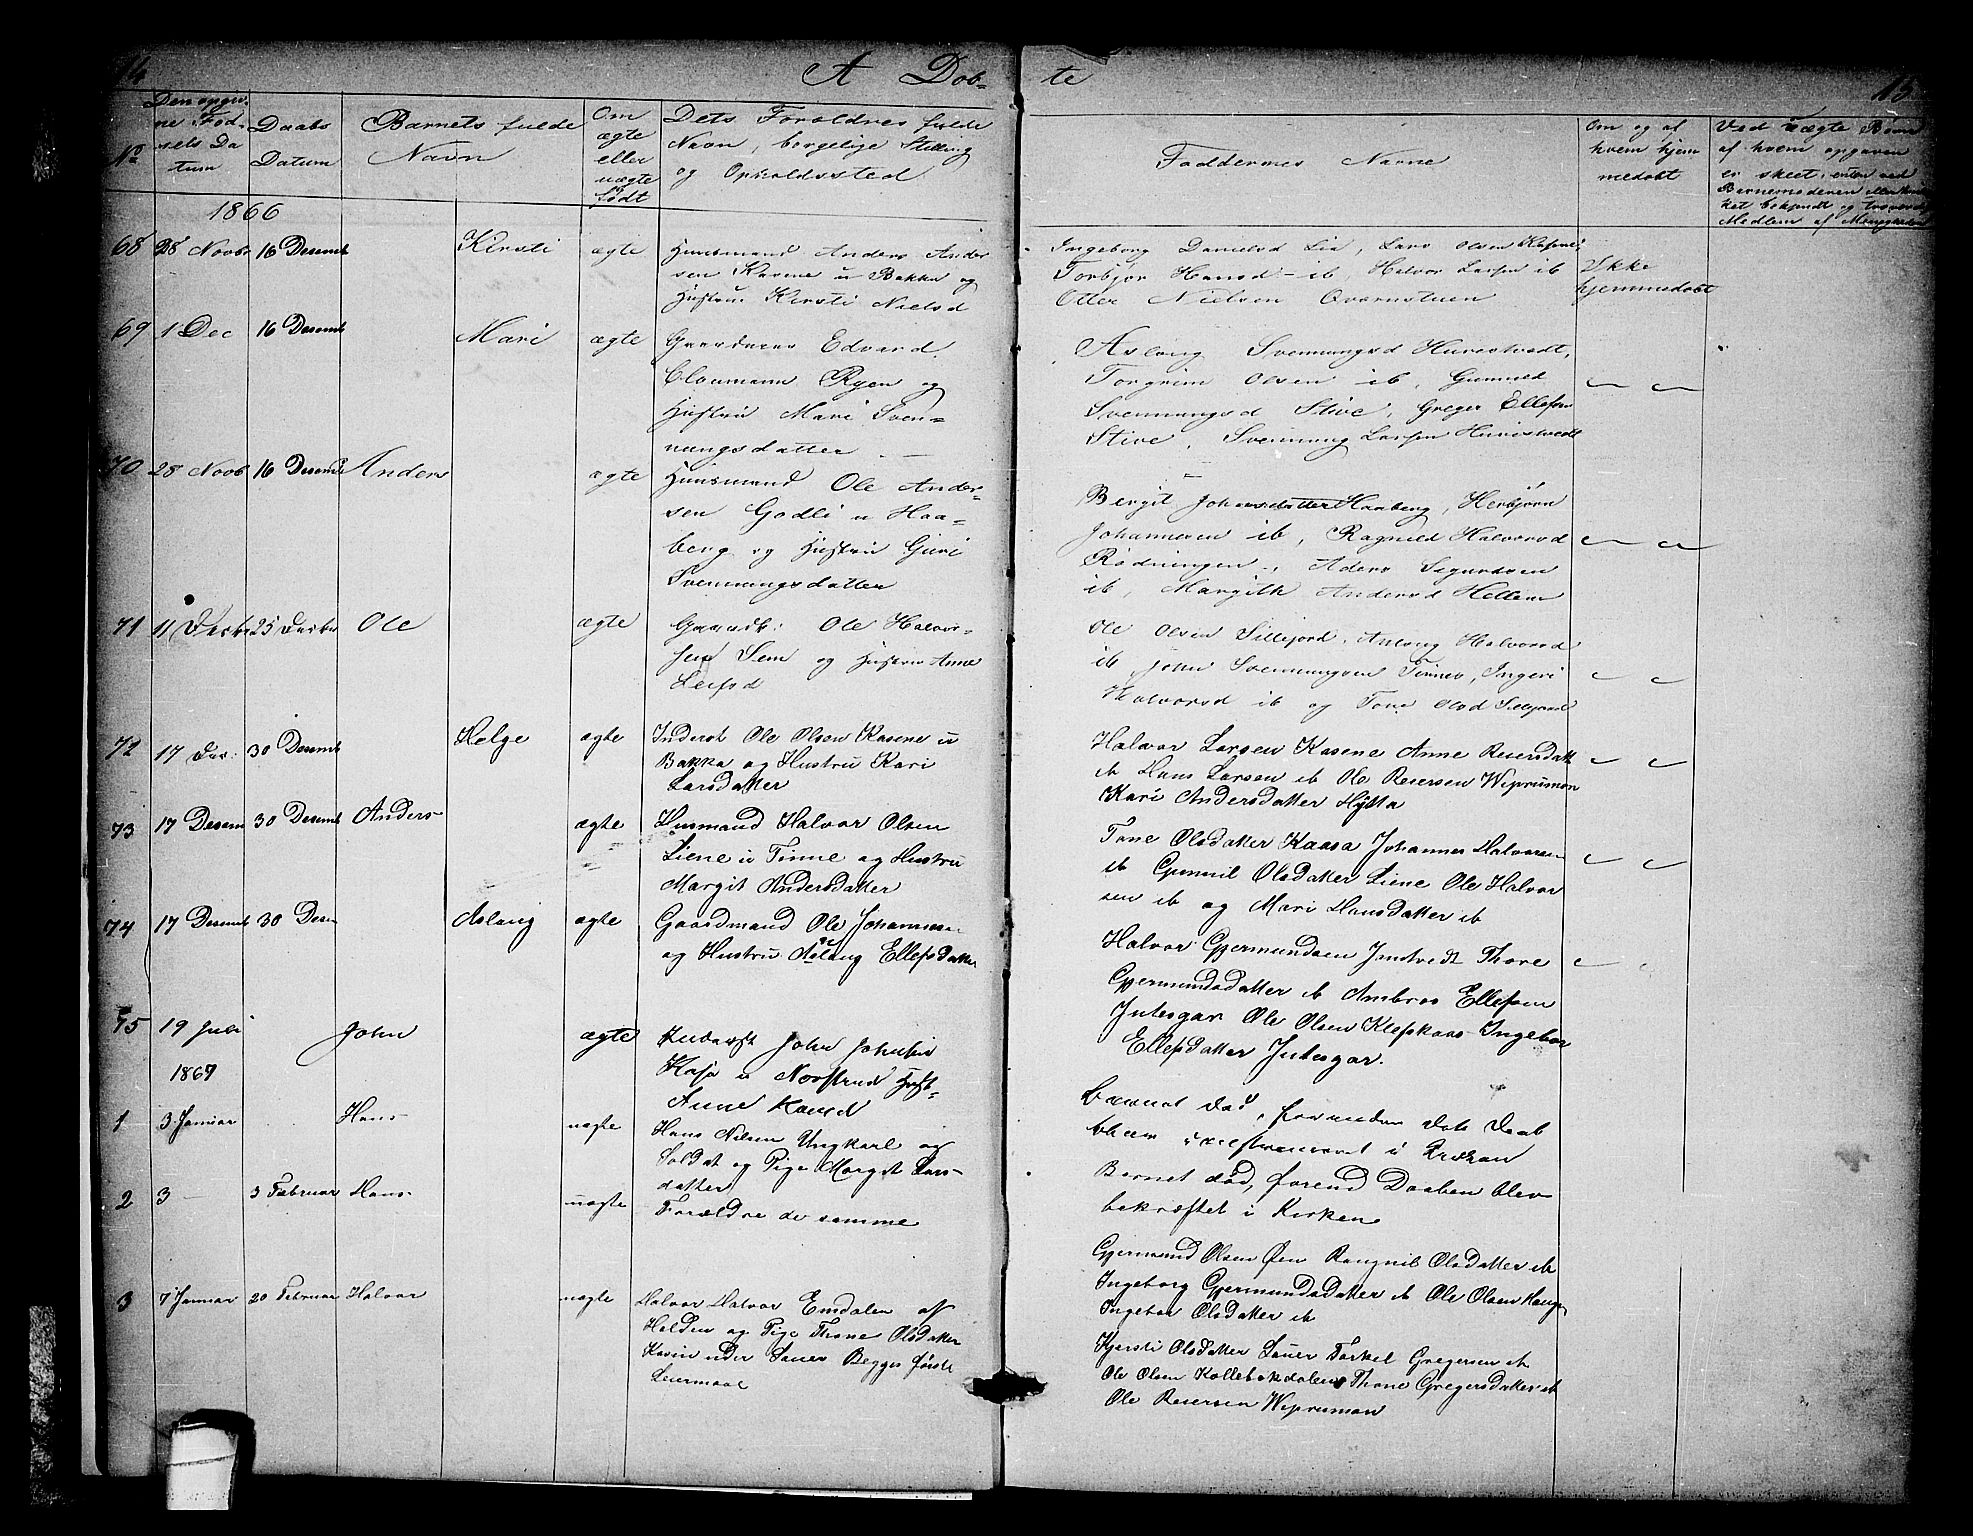 14
A Døb-
te
15
No
Den opgiv-
ne Fød-
sels Da
tum
Daabs
Datum
Barnets fulde
Navn
Om
ægte
eller
uægte
født
Dets Foreldres fulde
Navn, borgelige Stilling
og Opholdssted
Faddernes Navne
Om og af
hvem hjem
medøbt
Ved uægte Børn
af hvem opgaven
er skeet, enten ved
Barnemoderen eller
ket bekjendt og
Medlem af Menigheden
1866
68 28 Novbr 16 Desemb Kirsti ægte Huusmand Anders Ander
sen Kasene u Bakka og
Hustru Kirsti Nielsd
Ingeborg Danielsd Lia, Lars Olsen Kasene
Torbjør Hansd ib, Halvor Larsen ib
Otter Nielsen Qvernstuen
Ikke
hjemmedøbt
69 1 Dec 16 Desemb Mari ægte Edvard
Cloumann Ryen og
Hustru Mari Sven-
nungsdatter
Aslaug Svennungsd Hurestvedt,
Torgrim Olsen ib, Gunnild
Svennungsd Stive, Greger Ellefsen
Stive, Svennung Larsen Hurestvedt
70 28 Novb 16 Desemb Anders ægte Huusmand Ole Ander-
sen Godli u Haa-
berg og Hustru Guri
Svennungsdatter
Bergit Johannesdatter Haaberg, Herbjørn
Johannesen ib, Ragnild Halvorsd
Rødningen, Aders Sigurdsen
ib, Margith Andersd Hellem
71 11 25 Ole ægte Gaardb. Ole Halvor-
sen Sem og Hustru Anne
Leifsd
Ole Olsen Sillejord, Aslaug Halvorsd
ib John Svennungsen Tinnes, Ingeri
Halvorsd ib og Tone Olsd Sillejord
72 17 Des. 30 Desemb Helge ægte Inderst Ole Olsen Kasene u
Bakka og Hustru Kari
Larsdatter
Halvor Larsen Kasene Anne Reiersdatt
ib Hans Larsen ib Ole Reiersen Wiprumon
Kari Andersdatter Hytta
73 17 Desem 30 Desemb Anders ægte Husmand Halvor Olsen
Liene u Tinne og Hustru
Margit Andersdatter
Tone Olsdatter Kaasa Johannes Halvorsen
ib Gunnil Olsdatter Liene Ole Halvor
sen ib og Mari Hansdatter ib
74 17 Desemb 30 Desem Aslaug ægte Gaardmand Ole Johannesen
og Hustru Aslaug Ellefsdatter
Halvor Gjermundsen Jmstvedt Thore
Gjermundsdatter ib Ambros Ellefsen
Jutesgar Ole Olsen Klefskaas Ingebor
Ellefsdatter Jutesgar.
75 19 Juli John ægte Inderst John Johnsen
Kasa u Novstrud Hust-
Anne Knusd
Barnet død, forinden dets Daab
bleven i Kirken
1867
1 3 Januar Hans uægte Hans Nilsen Ungkarl og
Soldat og Pige Margit Lars-
datter
2 3 3 Februar Hans uægte Forældre de samme
Barnet død, førend Daaben blev
bekræftet i Kirken
3 7 Januar 20 Februar Halvor uægte Halvor Halvor Emdalen af
Holden og Pige Thone Olsdatter
Kasin under Sauer Begges første
Leiermaal
Gjermund Olsen Øen Rangnil Olsdatter ib
Ingeborg Gjermundsdatter ib Ole Olsen Haugen
Ingebor Olsdatter ib
Kjersti Olsdatter Sauer Torkel Gregersen ib
Ole Olsen Kollebækdalen Thone Gregersdatter ib
Ole Reiersen Wiprumon